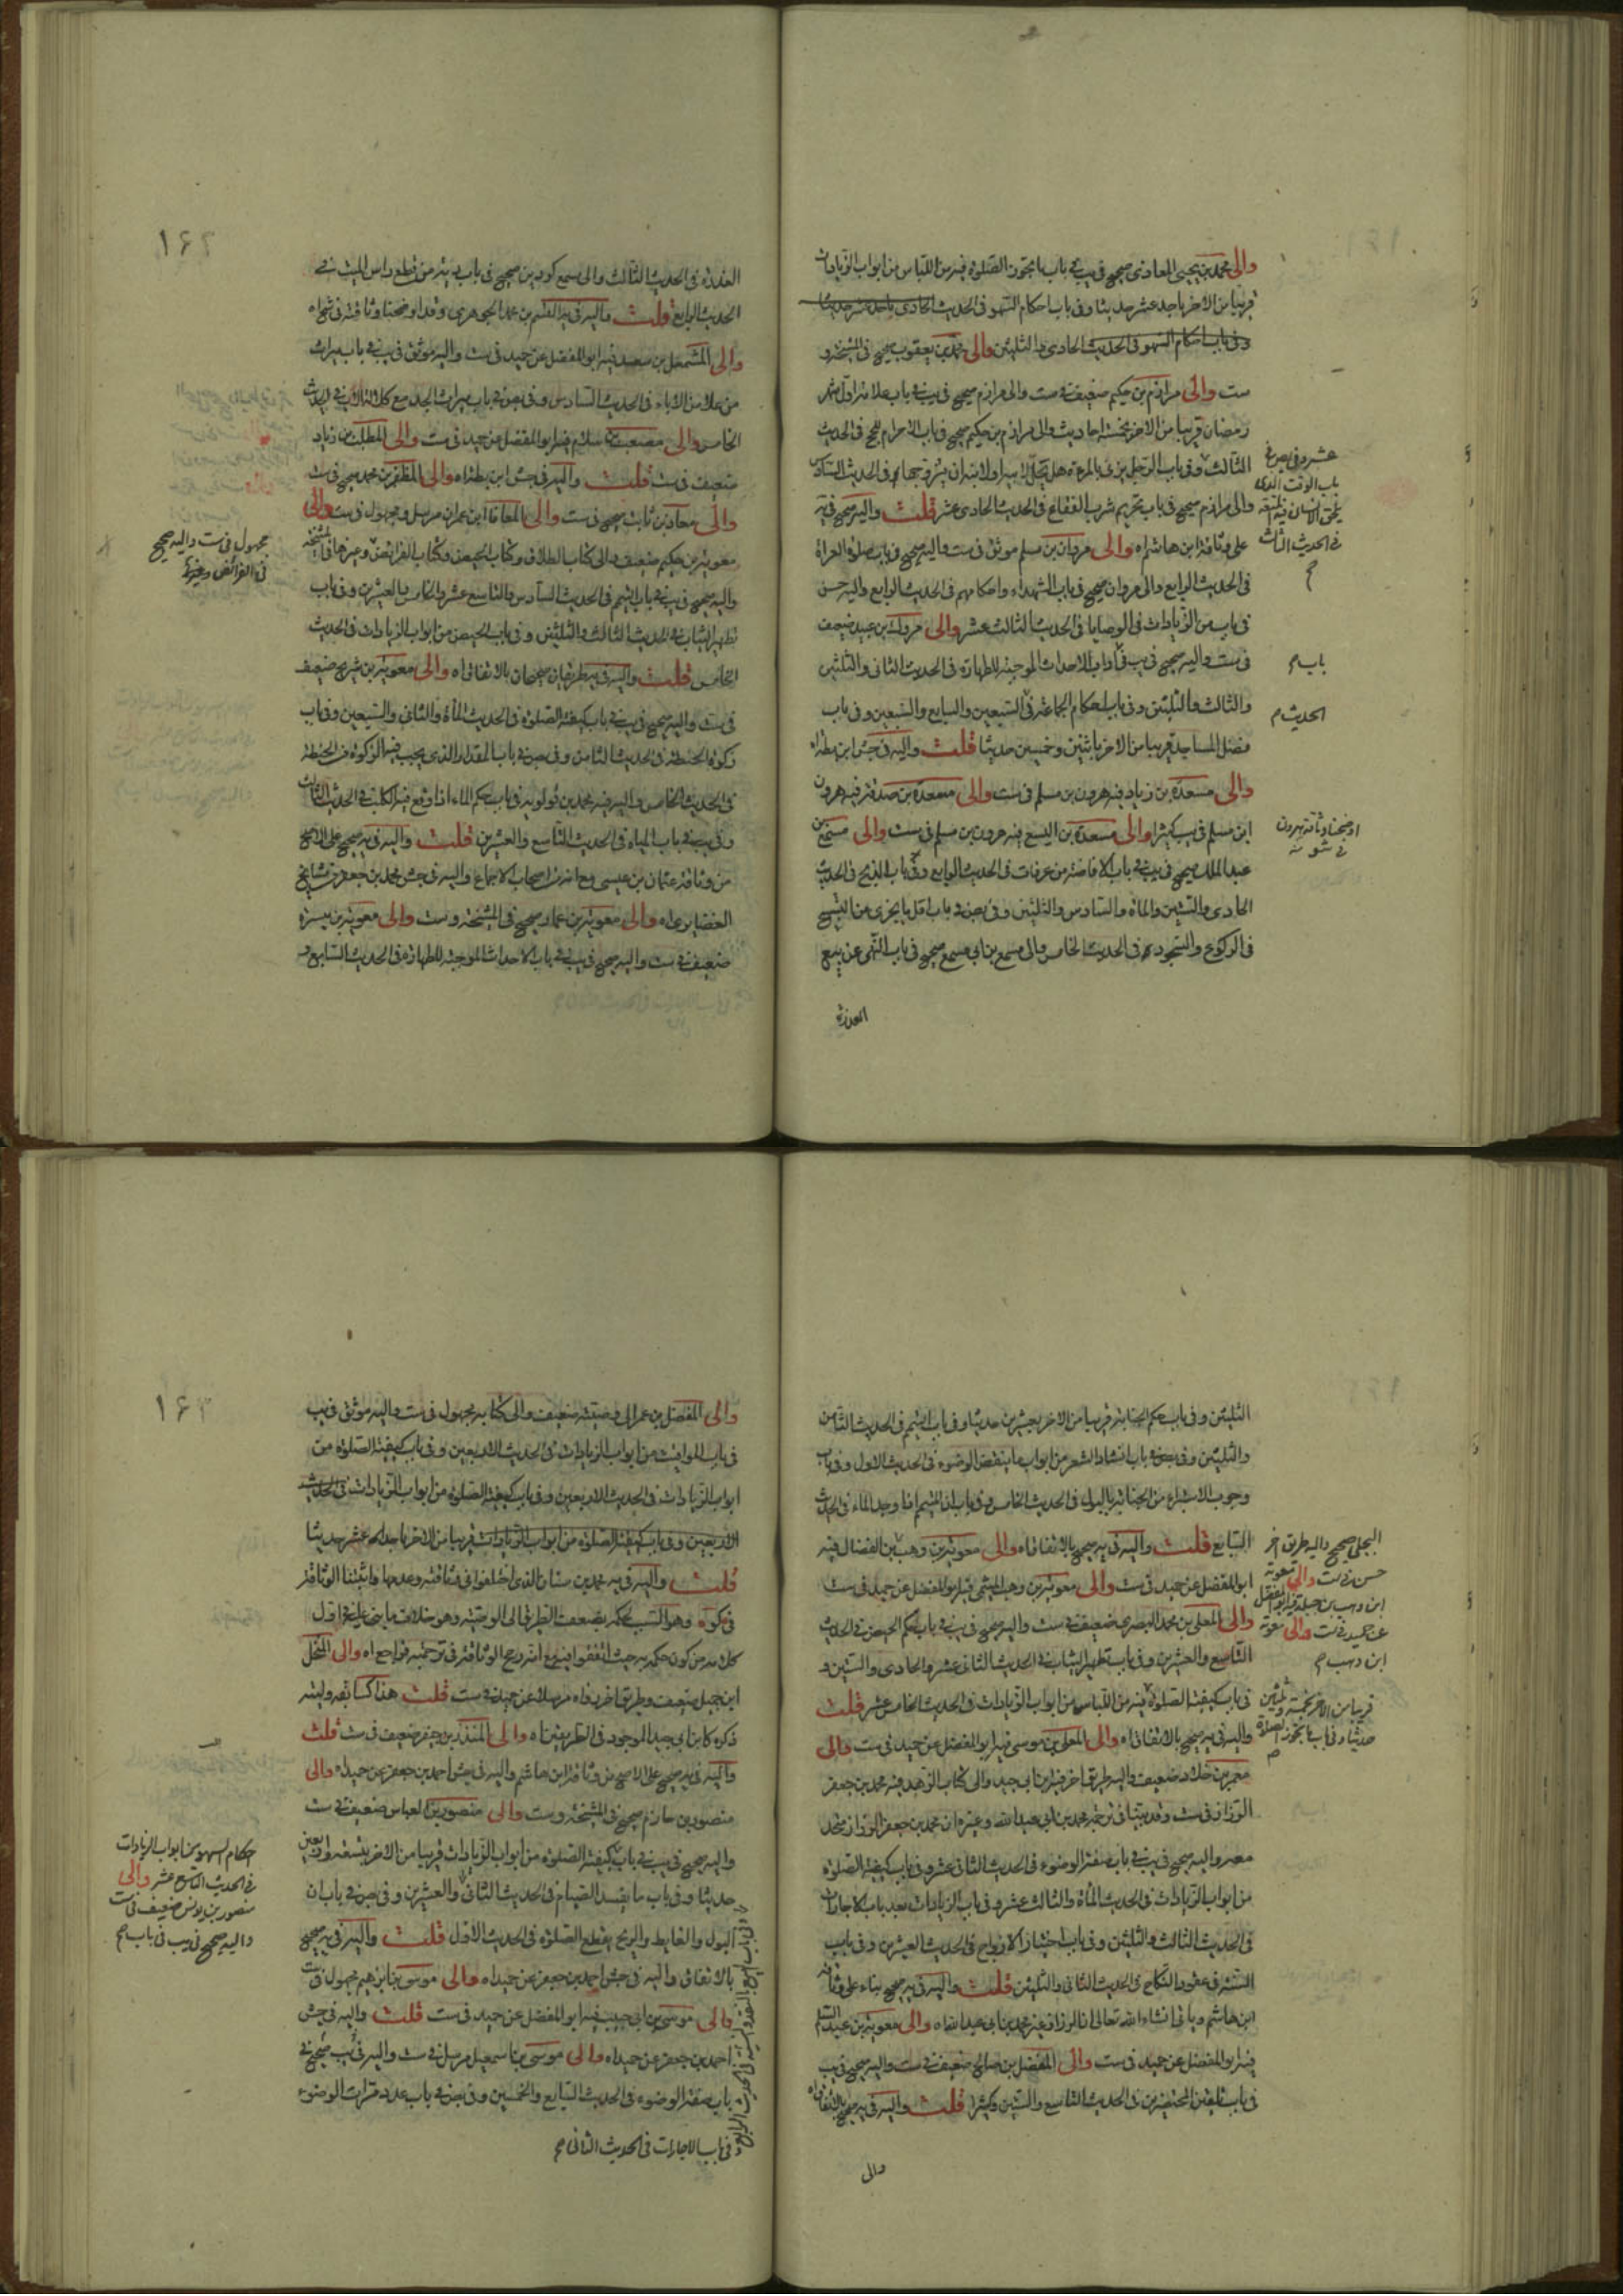 والى محمد بن يحيى المعاذى صحيح فى يب فى باب ما يجوز الصلوة فيه من اللباس من ابواب الزيادات
قريبا من الاخر باحد عشر حديثا وفى باب احكام السهو فى الحديث الحادى
وفى باب احكام السهو فى الحديث الحادى والثلثين والى محمد بن يعقوب صحيح فى المشيخة و
ست والى مرازم بن حكيم ضعيف فى ست والى مرازم صحيح فى يب فى باب علامة اول شهر
رمضان قريبا من الاخر بخمسة احاديث والى مرازم بن حكيم صحيح فى باب الاحرام للحج فى الحديث
الثالث وفى باب الرجل يزنى بالمرءة هل يحل لابيه او لابنه ان يتزوجها فى الحديث السادس
والى مرازم صحيح فى باب تحريم شرب الفقاع فى الحديث الحادى عشر قلت واليه صحيح فى يه
على وثاقة ابن هاشم اه والى مروان بن مسلم موثق فى ست واليه صحيح فى باب صلوة العراة
فى الحديث الرابع والى مروان صحيح فى باب الشهداء واحكامهم فى الحديث الرابع واليه حسن
فى باب من الزيادات فى الوصايا فى الحديث الثالث عشر والى مروك بن عبيد ضعيف
فى ست واليه صحيح فى يب فى اداب الاحداث الموجبة للطهارة فى الحديث الثانى والثلثين
والثالث والثلثين وفى باب احكام الجماعة فى السبعين والسابع والسبعين وفى باب
فضل المساجد قريبا من الاخر باثنين وخمسين حديثا قلت واليه فى جش ابن بطة اه
والى مسعدة بن زياد فيه هرون بن مسلم فى ست والى مسعدة بن صدقة فيه هرون
ابن مسلم فى يب كثيرا والى مسعدة بن اليسع فيه هرون بن مسلم فى ست والى مسمع بن
عبد الملك صحيح فى يب فى باب الافاضة من عرفات فى الحديث الرابع وفى باب الذبح فى الحديث
الحادى والستين والمائة والسادس والثلثين وفى بص فى باب اقل ما يجزى من التسبيح
فى الركوع والسجود فى الحديث الخامس والى مسمع بن ابى مسمع صحيح فى باب النهى عن بيع
العذرة
عشر وفى بص فى
باب الوقت الذى
يلحق الانسان فيه
فى الحديث الثالث
باب م
الحديث م
اوضحنا وثاقة هرون
فى شواه
١٦٢
العذرة فى الحديث الثالث والى مسمع كردين صحيح فى باب دية من قطع راس الميت فى
الحديث الرابع قلت واليه فى يه القسم بن محمد الجوهرى وقد اوضحنا وثاقته فى شواه
والى المشمعل بن سعد فيه ابو المفضل عن حميد فى ست واليه موثق فى يب فى باب ميراث
من علا من الاباء فى الحديث السادس وفى بص فى باب ميراث الجد مع كلالة الاب فى الحديث
الخامس والى مصعب بن سلام فيه ابو المفضل عن حميد فى ست والى المطلب بن زياد
ضعيف فى ست قلت واليه فى جش ابن بطة اه والى المظفر بن محمد صحيح فى ست
والى معاذ بن ثابت صحيح فى ست والى المعافا ابن عمران مرسل ومجهول فى ست والى
معوية بن حكيم ضعيف والى كتاب الطلاق وكتاب الحيض وكتاب الفرائض وغيرها فى المشيخة
واليه صحيح فى يب فى باب التيمم فى الحديث السادس والتاسع عشر والخامس والعشرين وفى باب
تطهير الثياب فى الحديث الثالث والثلثين وفى باب الحيض من ابواب الزيادات فى الحديث
الخامس قلت واليه فى يه طريقان صحيحان بالاتفاق اه والى معوية بن شريح ضعيف
فى ست واليه صحيح فى يب فى باب كيفية الصلوة فى الحديث المأة والثانى والسبعين وفى باب
زكوة الحنطة فى الحديث الثامن وفى بص فى باب المقدار الذى يجب فيه الزكوة من الحنطة
فى الحديث الخامس واليه فيه محمد بن قولويه فى باب حكم الماء اذا وقع فيه الكلب فى الحديث الثالث
وفى يب فى باب المياه فى الحديث التاسع والعشرين قلت واليه فى يه صحيح على الاصح
من وثاقة عثمان بن عيسى مع انه من اصحاب الاجماع واليه فى جش محمد بن جعفر من مشايخ
الغضايرى اه والى معوية بن عمار صحيح فى المشيخة وست والى معوية بن ميسرة
ضعيف فى ست واليه صحيح فى يب فى باب الاحداث الموجبة للطهارة فى الحديث السابع و
مجهول فى ست واليه صحيح
فى الفرائض وغيرها
الثلثين وفى باب حكم الجنابة قريبا من الاخر بعشرين حديثا وفى باب التيمم فى الحديث الثامن
والثلثين وفى بص فى باب انشاد الشعر من ابواب ما ينقض الوضوء فى الحديث الاول وفى باب
وجوب الاستبراء من الجنابة بالبول فى الحديث الخامس وفى باب ان المتيمم اذا وجد الماء فى الحديث
السابع قلت واليه فى يه صحيح بالاتفاق اه والى معوية بن وهب بن الفضال فيه
ابو المفضل عن حميد فى ست والى معوية بن وهب الميثمى فيه ابو المفضل عن حميد فى ست
والى المعلى بن محمد البصرى ضعيف فى ست واليه صحيح فى يب فى باب حكم الحيض فى الحديث
التاسع والعشرين وفى باب تطهير الثياب فى الحديث الثانى عشر والحادى والستين و
فى باب كيفية الصلوة فيه من اللباس من ابواب الزيادات فى الحديث الخامس عشر قلت
واليه فى يه صحيح بالاتفاق اه والى المعلى بن موسى فيه ابو المفضل عن حميد فى ست والى
معمر بن خلاد ضعيف واليه طريق اخر فيه ابن ابى جيد والى كتاب الزهد فيه محمد بن جعفر
الرزاز فى ست وقد بينا فى ترجمة محمد بن ابى عبد الله وغيره ان محمد بن جعفر الرزاز متحد
معه واليه صحيح فى يب فى باب صفة الوضوء فى الحديث الثانى عشر وفى باب كيفية الصلوة
من ابواب الزيادات فى الحديث المأة والثالث عشر وفى باب الزيادات بعد باب الاجارات
فى الحديث الثالث والثلثين وفى باب اختيار الازواج فى الحديث العشرين وفى باب
السنة فى عقود النكاح فى الحديث الثانى والثلثين قلت واليه فى يه صحيح بناء على وثاقة
ابن هاشم وياتى انشاء الله تعالى ان الرزاز غير محمد بن ابى عبد الله اه والى معوية بن
فيه ابو المفضل عن حميد فى ست والى المفضل بن صالح ضعيف فى ست واليه صحيح فى يب
فى باب تلقين المحتضرين فى الحديث التاسع والستين وكثيرا قلت واليه فى يه صحيح بالاتفاق اه
والى
البجلى صحيح واليه طريق اخر
حسن فى ست والى معوية
ابن وهب بن جبلة فيه ابو المفضل
عن حميد فى ست والى معوية
ابن وهب م
قريبا من الاخر بخمسة وثلثين
حديثا وفى باب ما يجوز الصلوة
١٦٣
والى المفضل بن عمر الى وصيته ضعيف والى كتابه مجهول فى ست واليه موثق فى يب
فى باب المواقيت من ابواب الزيادات فى الحديث الاربعين وفى باب كيفية الصلوة من
ابواب الزيادات فى الحديث الاربعين وفى باب كيفية الصلوة من ابواب الزيادات فى الحديث
الاربعين وفى باب كيفية الصلوة من ابواب الزيادات قريبا من الاخر باحد عشر حديثا
قلت واليه فى يه محمد بن سنان الذى اختلفوا فى وثاقته وعدمها واثبتنا الوثاقة
وهو السبب لحكمه بضعف الطريق الى الوصية وهو خلاف ما بنى عليه فى اول
كلامه من كون حكمه من حيث اتفقوا فيه مع انه رجح الوثاقة فى ترجمته فراجع اه والى المنخل
ابن جميل ضعيف وطريق اخر فاه مرسلا عن حميد فى ست قلت هذا كسابقه وليته
ذكره كابن ابى جيد الموجود فى الطريقين اه والى المنذر بن جيفر ضعيف فى ست قلت
واليه فى يه صحيح على الاصح من وثاقة ابن هاشم واليه فى جش احمد بن جعفر عن حميد اه والى
منصور بن حازم صحيح فى المشيخة وست والى منصور بن العباس ضعيف فى ست
واليه صحيح فى يب فى باب كيفية الصلوة من ابواب الزيادات قريبا من الاخر بتسعة واربعين
حديثا وفى باب ما يفسد الصيام فى الحديث الثانى والعشرين وفى بص فى باب ان
البول والغايط والريح يقطع الصلوة فى الحديث الاول قلت واليه فى يه صحيح
بالاتفاق واليه فى جش احمد بن جعفر عن حميد اه والى موسى بن ابرهيم مجهول فى ست
والى موسى بن ابى حبيب فيه ابو المفضل عن حميد فى ست قلت واليه فى جش
احمد بن جعفر عن حميد اه والى موسى بن اسمعيل مرسل فى ست واليه فى يب صحيح فى
باب صفة الوضوء فى الحديث السابع والخمسين وفى بص فى باب عدد مرات الوضوء
فى باب الاجارات فى الحديث الثانى م
احكام السهو من ابواب الزيادات
فى الحديث التاسع عشر والى
منصور بن يونس ضعيف فى ست
واليه صحيح فى يب فى باب م